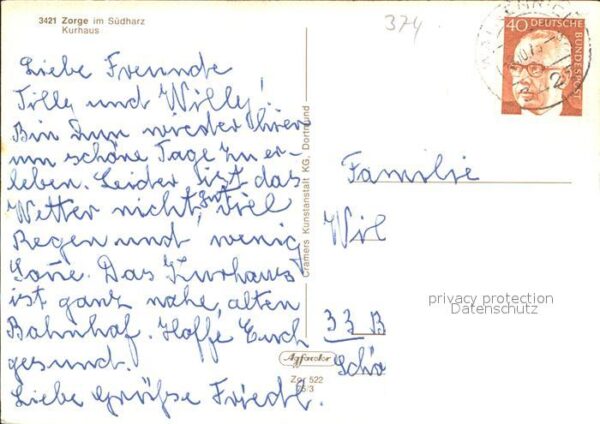 3421 Zorge im Südharz
Kurhaus
374
Liebe Freunde
Tilly und Willy!
Bin nun wieder hier
um schöne Tage zu er-
leben. Leider ist das
Wetter nicht gut, viel
Regen und wenig
Sonne. Das Kurhaus
ist ganz nahe, alten
Bahnhof. Hoffe Euch
gesund.
Liebe Grüße Friedl.
Cramers Kunstanstalt KG, Dortmund
Agfacolor
Zo 522
75/3
40 DEUTSCHE
BUNDESPOST
Familie
Wil
33 B
Schö
privacy protection
Datenschutz